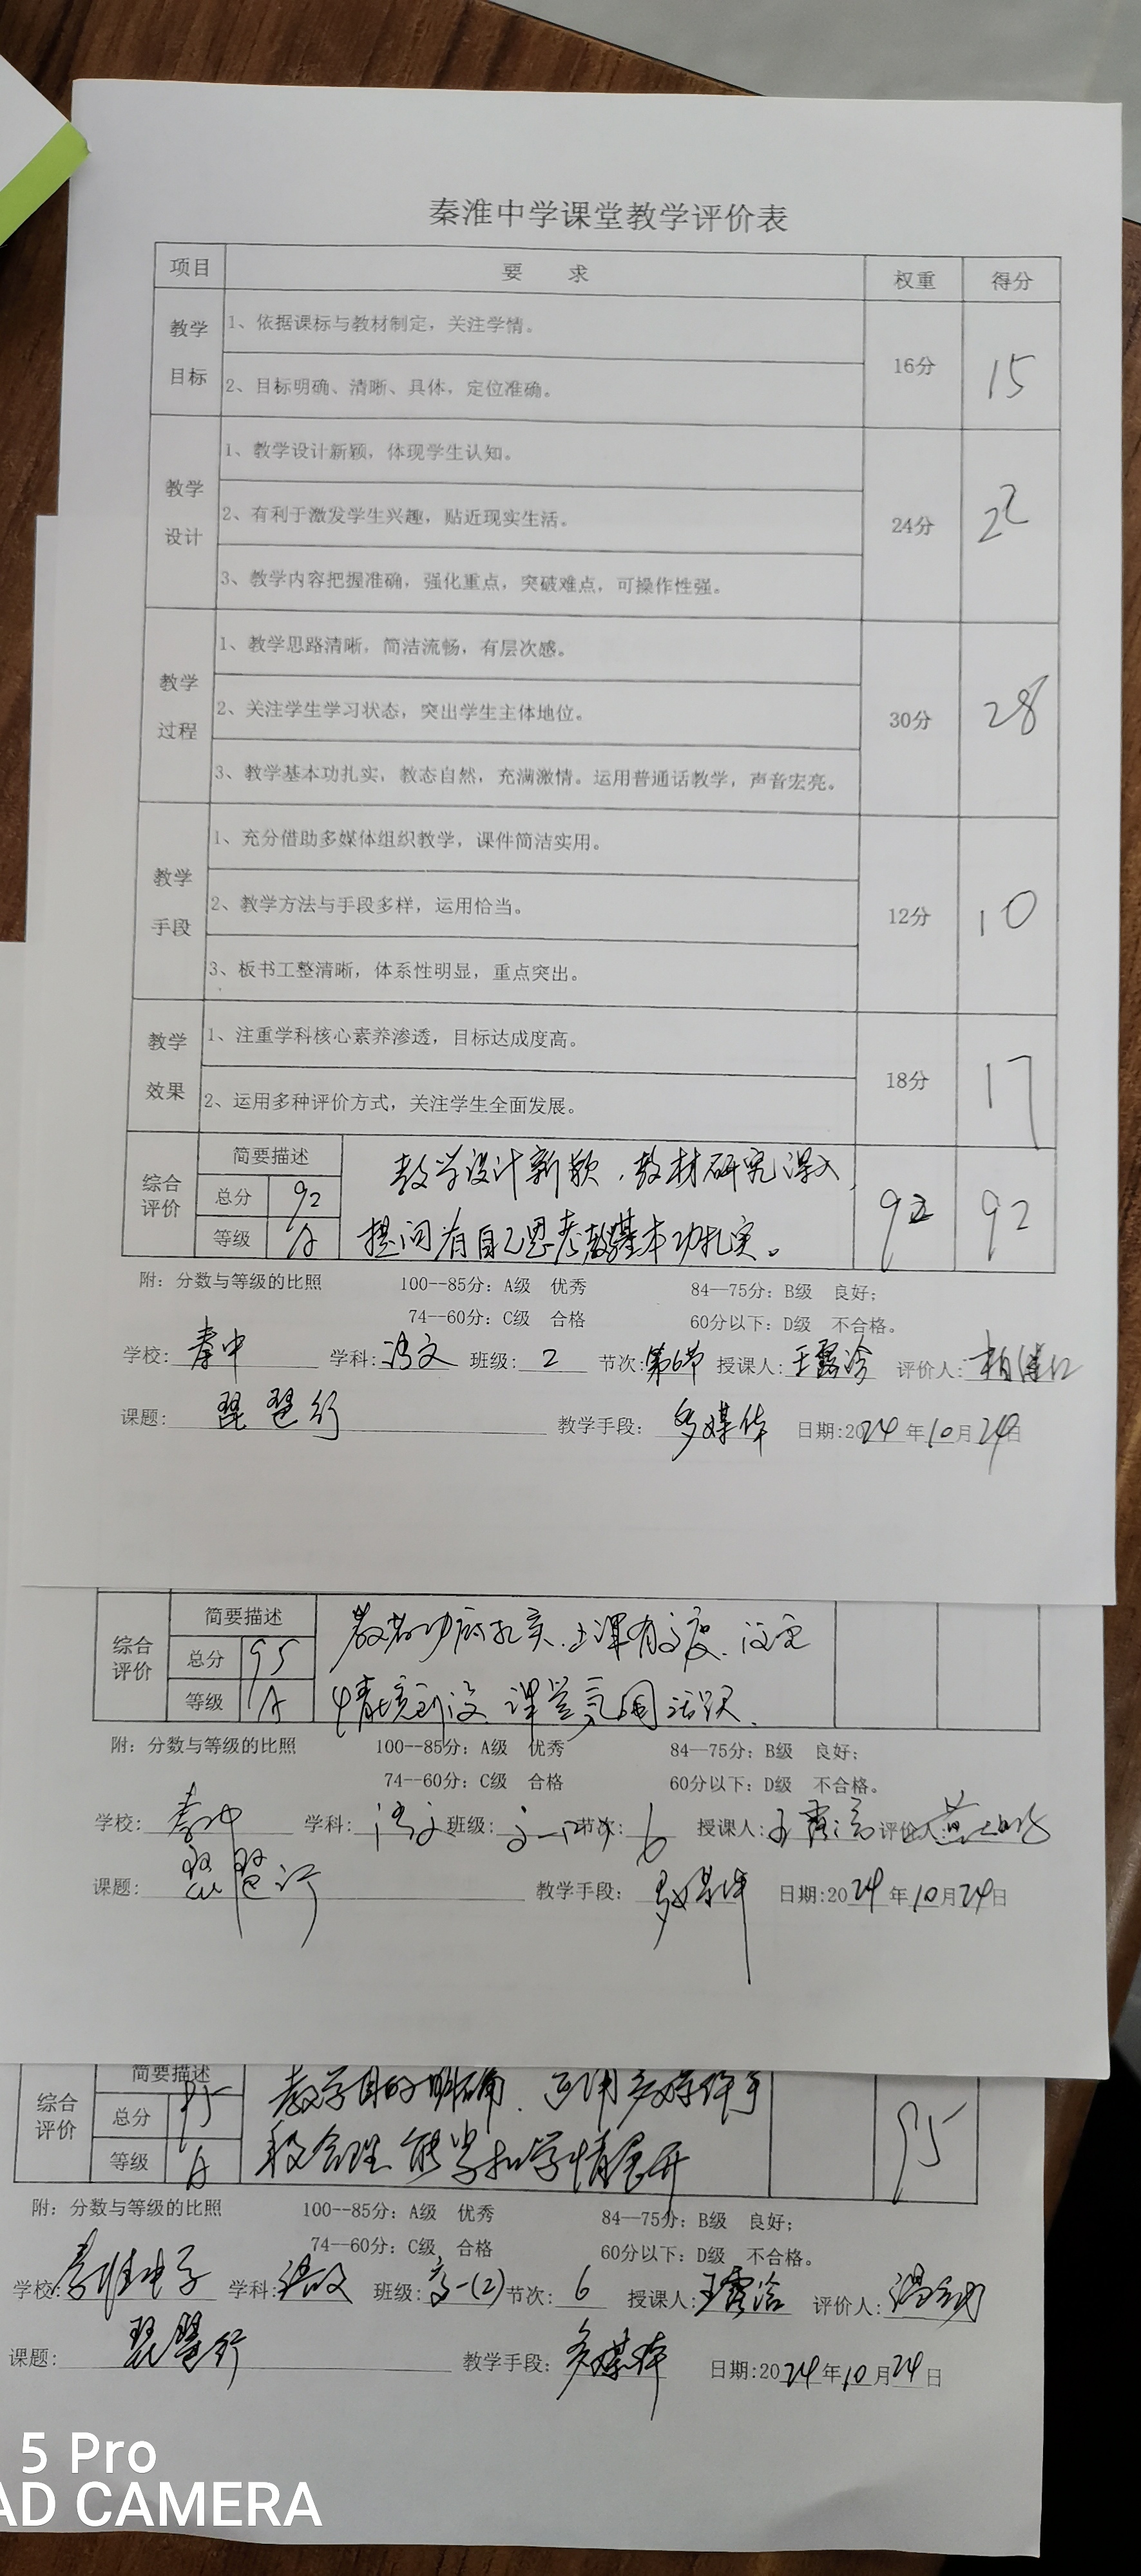 秦淮中学课堂教学评价表
项目 要 求 权重 得分
教学目标 1、依据课标与教材制定，关注学情。 16分 15
2、目标明确、清晰、具体，定位准确。
教学设计 1、教学设计新颖，体现学生认知。 24分 22
2、有利于激发学生兴趣，贴近现实生活。
3、教学内容把握准确，强化重点，突破难点，可操作性强。
教学过程 1、教学思路清晰，简洁流畅，有层次感。 30分 28
2、关注学生学习状态，突出学生主体地位。
3、教学基本功扎实，教态自然，充满激情。运用普通话教学，声音宏亮。
教学手段 1、充分借助多媒体组织教学，课件简洁实用。 12分 10
2、教学方法与手段多样，运用恰当。
3、板书工整清晰，体系性明显，重点突出。
教学效果 1、注重学科核心素养渗透，目标达成度高。 18分 17
2、运用多种评价方式，关注学生全面发展。
综合评价 简要描述 教学设计新颖，教材研究深入，
总分 92 92 92
等级 A 提问有自己思考 教学基本功扎实。
附：分数与等级的比照 100--85分：A级 优秀 84--75分：B级 良好；
74--60分：C级 合格 60分以下：D级 不合格。
学校: 秦中 学科: 语文 班级: 2 节次: 第6节 授课人: 王露 评价人:
课题: 琵琶行 教学手段: 多媒体 日期:2024年10月24日
综合评价 简要描述 教者功底扎实、上课有高度、
总分 95
等级 A 情境 课堂氛围活跃、
附：分数与等级的比照 100--85分：A级 优秀 84--75分：B级 良好；
74--60分：C级 合格 60分以下：D级 不合格。
学校: 秦中 学科: 语文 班级: 节次: 6 授课人: 王露 评价人
课题: 琵琶行 教学手段: 多媒体 日期:2024年10月24日
综合评价 简要描述 教学目的明确、运用多媒体手
总分 95 95
等级 A 段合理 能紧扣学情展开
附：分数与等级的比照 100--85分：A级 优秀 84--75分：B级 良好；
74--60分：C级 合格 60分以下：D级 不合格。
学校: 秦淮中学 学科: 语文 班级: 高一(2) 节次: 6 授课人: 王露 评价人:
课题: 琵琶行 教学手段: 多媒体 日期:2024年10月24日
5 Pro
AD CAMERA